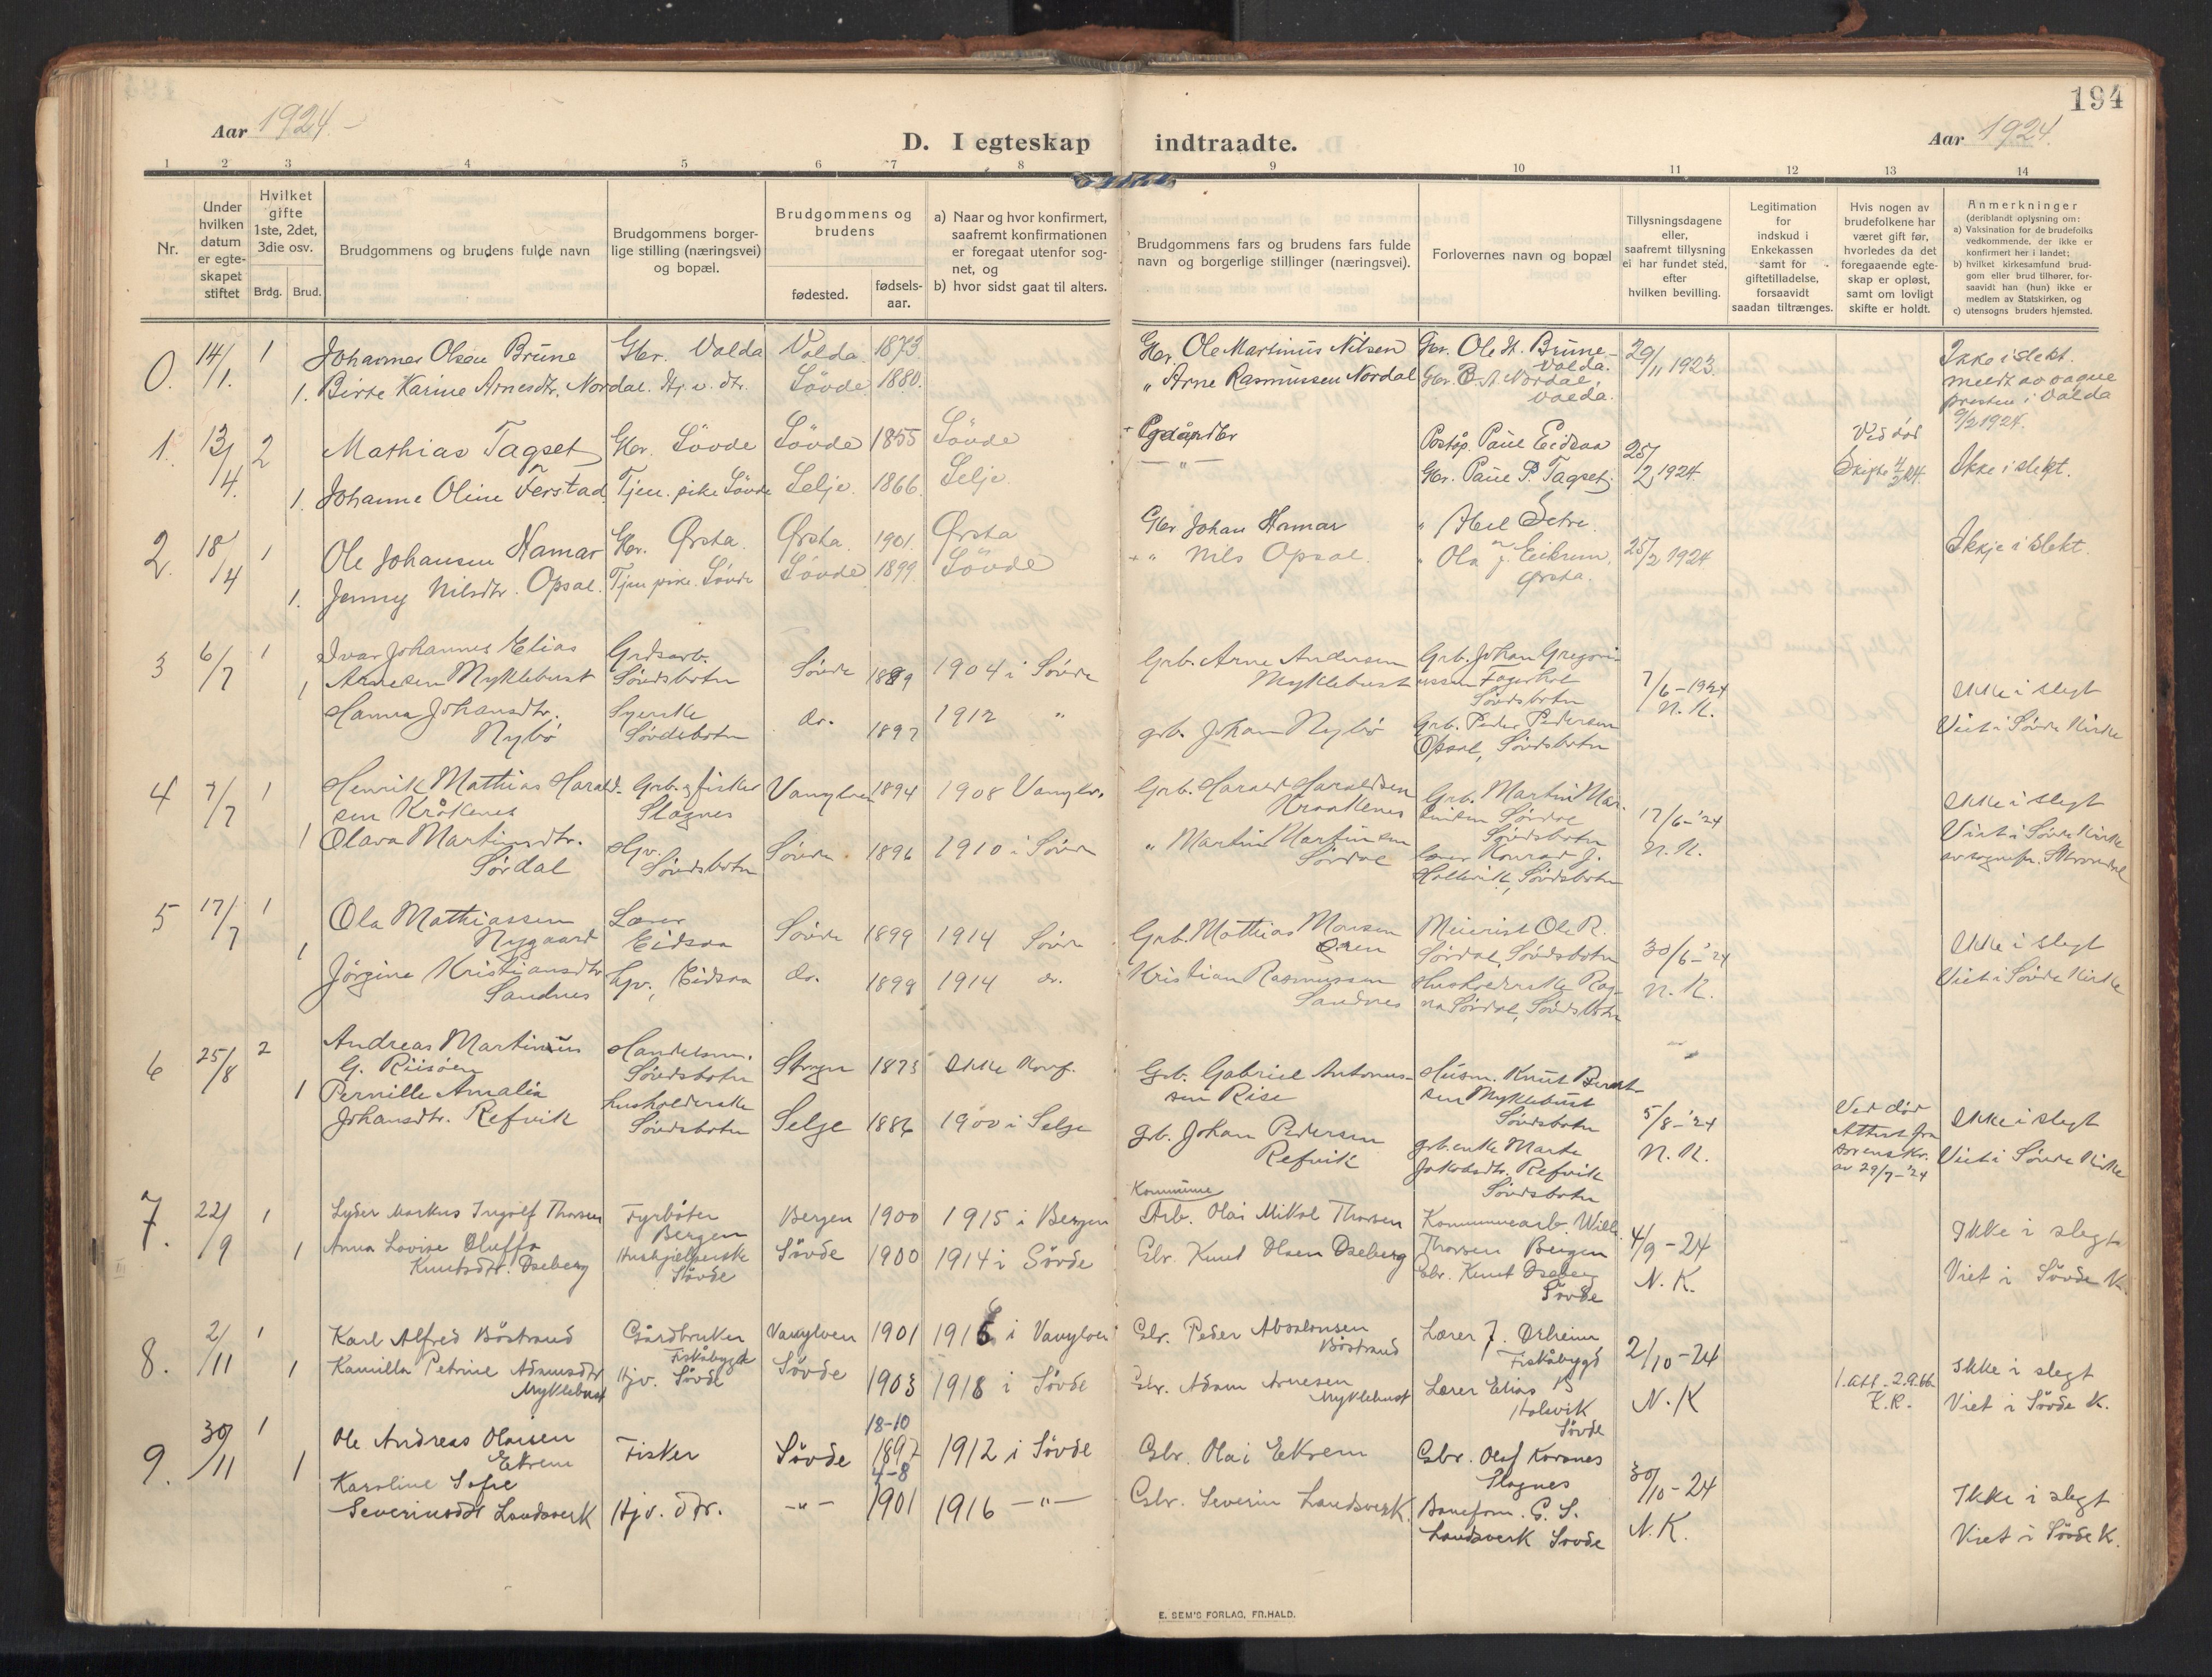 194
Aar 1924.
D. I egteskap indtraadte.
Aar 1924.
1 2 3 4 5 6 7 8 9 10 11 12 13 14
Nr.
Under hvilken datum er egteskapet stiftet
Hvilket gifte 1ste, 2det, 3die osv.
Brdg. Brud.
Brudgommens og brudens fulde navn
Brudgommens borgerlige stilling (næringsvei) og bopæl.
Brudgommens og brudens
fødested.
fødselsaar.
a) Naar og hvor konfirmert, saafremt konfirmationen er foregaat utenfor sognet, og
b) hvor sidst gaat til alters.
Brudgommens fars og brudens fars fulde navn og borgerlige stillinger (næringsvei).
Forlovernes navn og bopæl
Tillysningsdagene eller, saafremt tillysning ei har fundet sted, efter hvilken bevilling.
Legitimation for indskud i Enkekassen samt for giftetilladelse, forsaavidt saadan tiltrænges.
Hvis nogen av brudefolkene har været gift før, hvorledes da det foregaaende egteskap er opløst, samt om lovligt skifte er holdt.
Anmerkninger
(deriblandt oplysning om:
a) Vaksination for de brudefolks vedkommende, der ikke er konfirmert her i landet;
b) hvilket kirkesamfund brudgom eller brud tilhører, forsaavidt han (hun) ikke er medlem av Statskirken, og
c) utensogns bruders hjemsted.
0. 14/1. 1 Johannes Olsen Brune Gbr. Volda Volda 1873 Gbr. Ole Martinus Nilsen Gbr. Ole H. Brune Volda. 29/11 1923 Ikke i slekt.
1. Birte Karine Arnesdtr. Nordal. Hj. v. dtr. Søvde 1880. " Arne Rasmussen Nordal Gbr. B. A. Nordal, Volda. meldt av sogne presten i Volda 9/2 1924.
1. 13/4. 2 Mathias Tagset Gbr. Søvde Søvde 1855 Søvde Poståp. Paul Eidsaa 25/2 1924. Ved død Skifte Ikke i slekt.
1. Johanne Oline Ferstad Tjen. pike Søvde Selje. 1866. Selje. — " — Gbr. Paul P. Tagset.
2. 18/4 1 Ole Johansen Hamar Gbr. Ørsta. Ørsta. 1901. Ørsta Gbr Johan Hamar " Abel Setre. 25/2 1924 Ikkje i slekt.
1. Jenny Nilsdtr. Opsal. Tjen pike. Søvde Søvde 1899. Søvde + " Nils Opsal. " Ola J. Eikrem. Ørsta.
3 6/7 1 Ivar Johannes Elias Arnesen Myklebust Grdsarb. Søvdsbotn Søvde 1889 1904 i Søvde Grb. Arne Andersen Myklebust Grb. Johan Gregoriussen Fagerhol Søvdsbotn 7/6-1924 N. K. Ikke i slegt
1 Hanna Johansdtr. Nybö Syerske Søvdsbotn do. 1897 1912 " grb. Johan Nybö Grb. Peder Pedersen Opsal, Søvdsbotn Viet i Søvde Kirke
4 7/7 1 Henrik Mathias Haraldsen Kråkenes Grb. og fisker Slagnes Vanylven 1894 1908 Vanylv. Grb. Harald Haraldsen Kraakenes Grb. Martin Martinsen Sørdal Søvdsbotn 17/6-'24 N. K. Ikke i slegt
1 Olava Martinsdtr. Sørdal Hjv. Søvdsbotn Søvde 1896 1910 i Søvde " Martin Martinsen Sørdal lærer Konrad J. Holsvik, Søvdsbotn Viet i Søvde Kirke av sognepr.
5 17/7 1 Ola Mathiassen Nygaard Lærer Eidsaa Søvde 1899 1914 Søvde Grb. Mathias Monsen Meierist Ole R. Sørdal, Søvdsbotn 30/6-'24 N. K. Ikke i slegt
1 Jørgine Kristiansdtr. Sandnes hjv., Eidsaa do. 1898 1914 do. Kristian Rasmussen Sandnes Husholderske Ragna Sørdal, Søvdsbotn Viet i Søvde Kirke
6 25/8 2 Andreas Martinus G. Riisöen Handelsm. Søvdsbotn Stryn 1873 Ikke konf. Grb. Gabriel Antonussen Rise Husm. Knut Berntsen Myklebust Søvdsbotn 5/8-'24 N. K. Ved død Attest fra sorenskr. av 29/7-'24 Ikke i slegt
1 Pernille Amalia Johansdtr. Refvik husholderske Søvdsbotn Selje 1886 1900 i Selje grb. Johan Pedersen Refvik grb. enke Marte Jakobsdtr. Refvik Søvdsbotn Viet i Søvde Kirke
7. 22/9 1 Lyder Markus Ingolf Thorsen Fyrböter Bergen Bergen 1900 1915 i Bergen Kommune Arb. Olai Mikal Thorsen Kommunearb. Wilh. Thorsen Bergen 4/9-24 N. K. Ikke i slegt
1 Anna Lovise Oluffa Knutsdtr. Oseberg Hushjelperske Søvde Søvde 1900 1914 i Søvde Gbr. Knut Olsen Oseberg Gbr. Knut Oseberg Søvde Viet i Søvde K.
8. 2/11 1 Karl Alfred Böstrand Gårdbruker Fiskåbygd Vanylven 1901 1916 i Vanylven Gbr. Peder Absalonsen Böstrand Lærer J. Örheim Fiskåbygd 2/10-24 N. K Ikke i slegt
1 Kamilla Petrine Adamsdtr Myklebust Hjv. Søvde Søvde 1903 1918 i Søvde Gbr. Adam Arnesen Myklebust Lærer Elias B Holsvik Søvde 1.att. 2.9.66 K.R. Viet i Søvde K.
9. 30/11 1 Ole Andreas Olaisen Ekrem Fisker Søvde 18-10 1897 1912 i Søvde Gbr. Olai Ekrem Gbr. Olaf Korsnes Slagnes 30/10-24 N. K. Ikke i slegt
1 Karoline Sofie Severinsdt Landsverk Hjv. dtr. — " — 4-8 1901 1916 — " — Gbr. Severin Landsverk. Baneform. G. S. Landsverk Søvde Viet i Søvde K.
E. SEM'S FORLAG, FR.HALD.